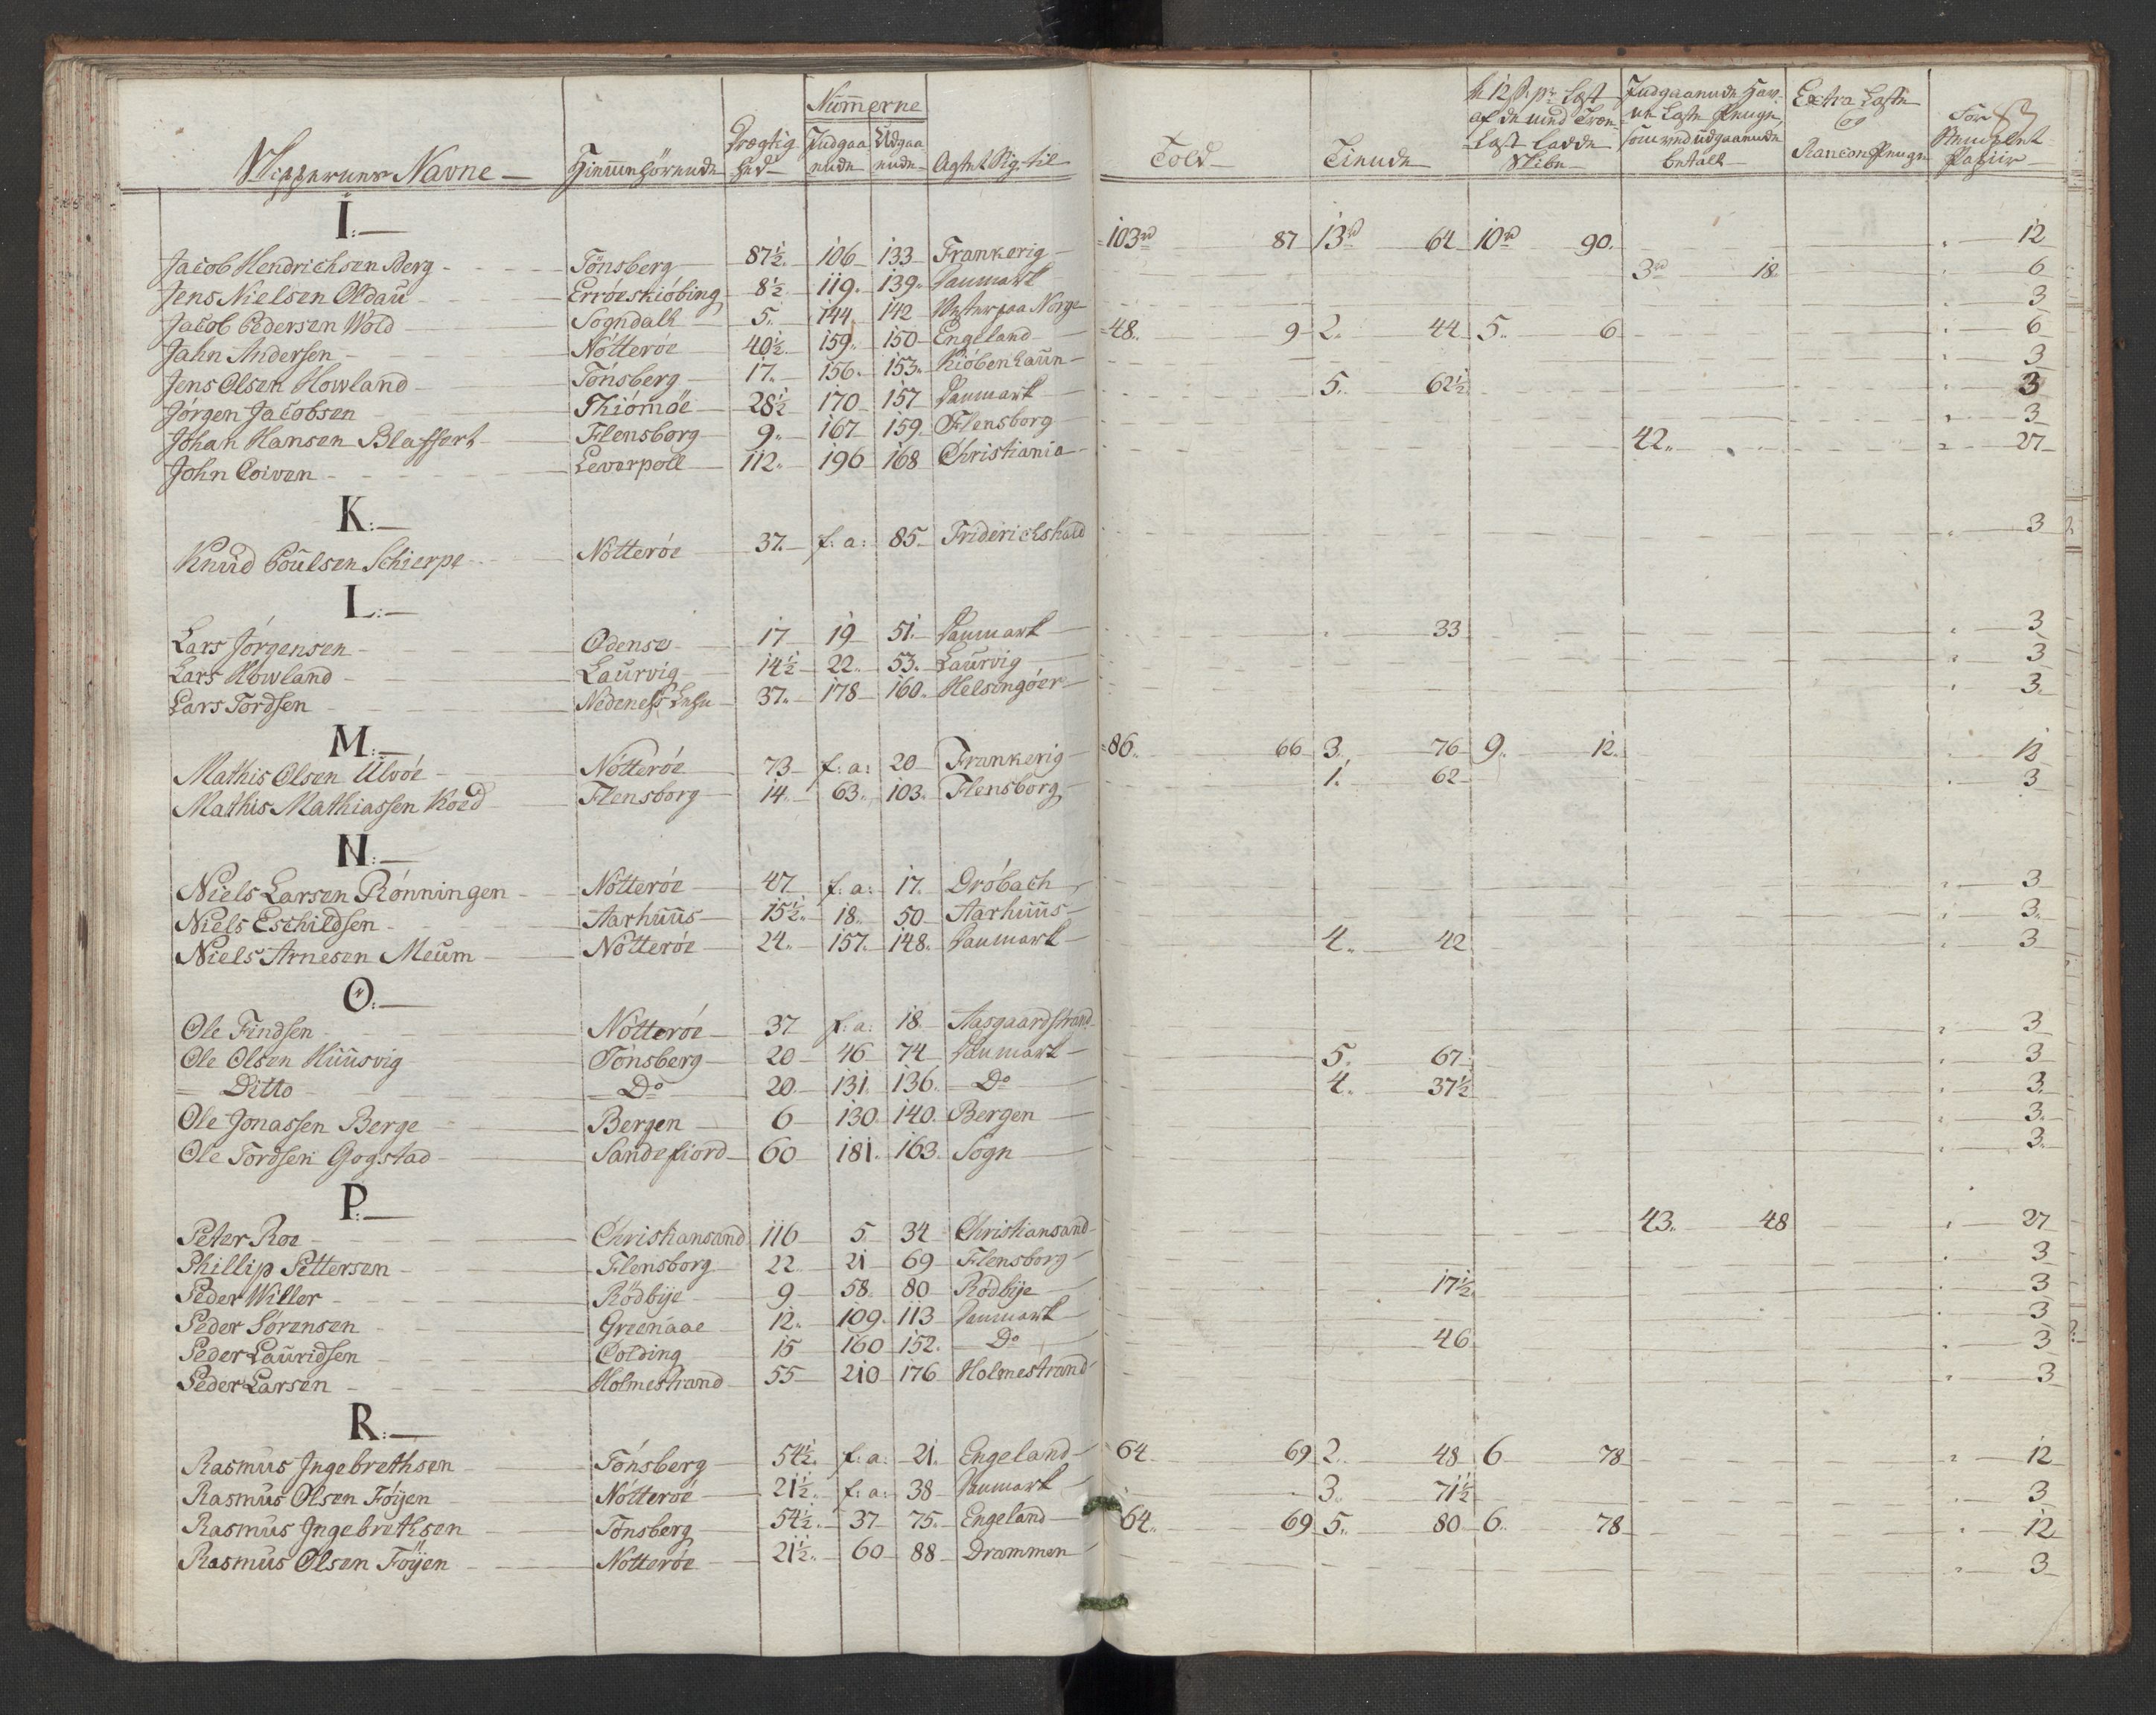 Skippernes Navne — Hiemmehørende Drægtighed Numerne Indgaaende Udgaaende Agtet Sig til Told Tiende à 12 s. pr. Læst af de med Træ Last ladde Skibe Indgaaende Læste Penge som ved udgaaende betalt Extra Læste og Rancon Penge For Stemplet Papiir
I:
Jacob Hendrichsen Berg Tönsberg 87½ 106 133 Frankerig 103 rd 87 13 rd 64 10 rd 90. 12
Jens Nielsen Oldau Erröeskiöbing 8½ 119. 139. Danmark 3 rd 18 6
Jacob Pedersen Wold Sogndahl 5. 144 142 Vester paa Norge 3
Jahn Andersen Nötteröe 40½ 159. 150 Engeland 48. 9 2. 44 5. 6 6
Jens Olsen Howland Tönsberg 17. 156. 153. Kiöbenhaun 3
Jörgen Jacobsen Thiömöe 28½ 170 157 Danmark 5. 62½ 3
Johan Hansen Blassert Flensborg 9. 167 159. Flensborg 3
John Coiven Leverpoll 112. 196 168 Christiania 42. 27
K:
Knud Poulsen Schierpe Nötteröe 37. f: a: 85 Friderichshald 3
L:
Lars Jörgensen Odense 17 19 51. Danmark 33 3
Lars Howland Laurvig 14½ 22. 53. Laurvig 3
Lars Tordsen Nedeness Lehn 37. 178 160. Helsingöer 3.
M:
Mathis Olsen Ulvöe Nötteröe 73 f: a: 20 Frankerig 86. 66 3. 76 9. 12. 12
Mathis Mathiassen Koed Flensborg 14. 63. 103. Flensborg 1. 62 3
N:
Niels Larsen Rönningen Nötteröe 47 f: a: 17. Dröbach 3
Niels Eschildsen Aarhuus 15½ 18. 50 Aarhuus 3.
Niels Arnesen Meum Nötteröe 24. 157. 148. Danmark 4. 42 3
O:
Ole Findsen Nötteröe 37 f: a: 18 Aasgaardstrand 3
Ole Olsen Huusvig Tönsberg 20 46 74 Danmark 5. 67 3
Ditto Do 20 131. 136. Do 4. 37½ 3.
Ole Jonassen Berge Bergen 6 130 140. Bergen 3.
Ole Tordsen Gogstad Sandefiord 60 181. 163. Sogn 3.
P:
Peter Roe Christiansand 116 5 34 Christiansand 43. 48 27
Phillip Pettersen Flensborg 22 21 69 Flensborg 3
Peder Willer Rödbije 9 58. 80 Rödbije 17½ 3
Peder Sörensen Greenaae 12. 109. 113 Danmark 3
Peder Lauridsen Colding 15 160 152. Do 46 3
Peder Larsen Holmestrand 55 210 176 Holmestrand 3
R:
Rasmus Jngebrethsen Tönsberg 54½ f: a: 21. Engeland 64 69 2. 48 6 78 12
Rasmus Olsen Föyen Nötteröe 21½ f: a: 38 Danmark 3. 71½ 3
Rasmus Jngebrethsen Tönsberg 54½ 37 75. Engeland 64. 69 5. 80 6. 78 12
Rasmus Olsen Föyen Nötteröe 21½ 60 88 Drammen 3